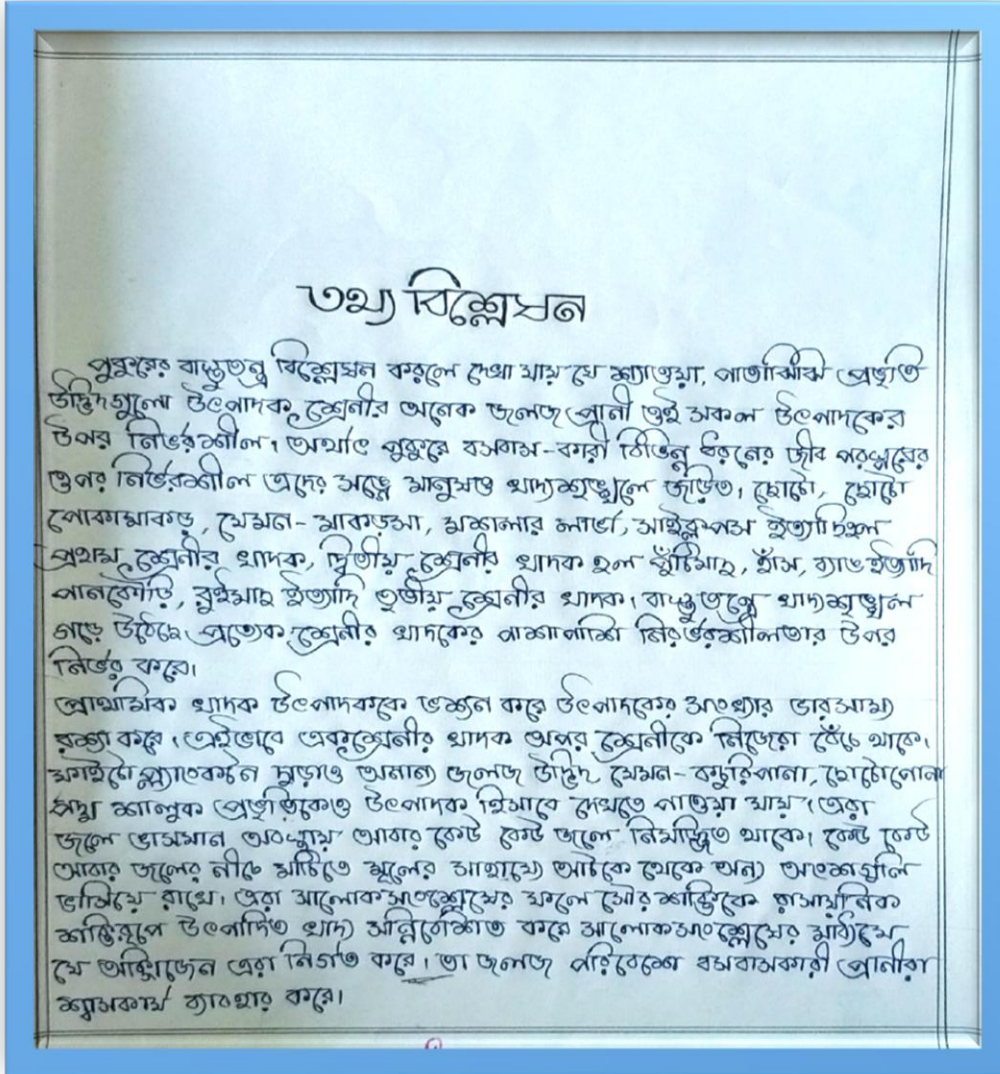 তথ্য বিশ্লেষন
পুকুরের বাস্তুতন্ত্র বিশ্লেষন করলে দেখা যায় যে শ্যাওয়া, পাতাঝিঁঝি প্রভৃতি
উদ্ভিদগুলো উৎপাদক শ্রেনীর অনেক জলজ প্রানী ওই সকল উৎপাদকের
উপর নির্ভরশীল। অর্থাৎ পুকুরে বসবাস-কারী বিভিন্ন ধরনের জীব পরস্পরের
ওপর নির্ভরশীল এদের সঙ্গে মানুষও খাদ্যশৃঙ্খলে জড়িত। ছোটো, ছোটো
পোকামাকড়, যেমন- মাকড়সা, মশালার লার্ভা, সাইক্লপস ইত্যাদি হল
প্রথম শ্রেনীর খাদক, দ্বিতীয় শ্রেনীর খাদক হল পুঁটিমাছ, হাঁস, ব্যাঙ ইত্যাদি
পানকৌড়ি, রুইমাছ ইত্যাদি তৃতীয় শ্রেনীর খাদক। বাস্তুতন্ত্রে খাদ্যশৃঙ্খল
গড়ে উঠেছে। প্রত্যেক শ্রেনীর খাদকের পাশাপাশি নির্ভরশীলতার উপর
নির্ভর করে।
প্রাথমিক খাদক উৎপাদককে ভক্ষন করে উৎপাদকের সংখ্যার ভারসাম্য
রক্ষা করে। এইভাবে একশ্রেনীর খাদক অপর শ্রেনীকে নিজেরা বেঁচে থাকে।
ফাইটোপ্ল্যাংকটন ছাড়াও অনান্য জলজ উদ্ভিদ যেমন- কচুরিপানা, ছোটোপোনা
পদ্ম শালুক প্রভৃতিকেও উৎপাদক হিসাবে দেখতে পাওয়া যায়। এরা
জলে ভাসমান অবস্থায় আবার কেউ কেউ জলে নিমজ্জিত থাকে। কেউ কেউ
আবার জলের নীচে মাটিতে মূলের সাহায্যে আটকে থেকে অন্য অংশগুলি
ভাসিয়ে রাখে। এরা সালোকসংশ্লেষের ফলে সৌরশক্তিকে রাসায়নিক
শক্তিরূপে উৎপাদিত খাদ্য সন্নিবেশিত করে সালোকসংশ্লেষের মাধ্যমে
যে অক্সিজেন এরা নির্গত করে। তা জলজ পরিবেশে বসবাসকারী প্রানীরা
শ্বাসকার্য ব্যাবহার করে।